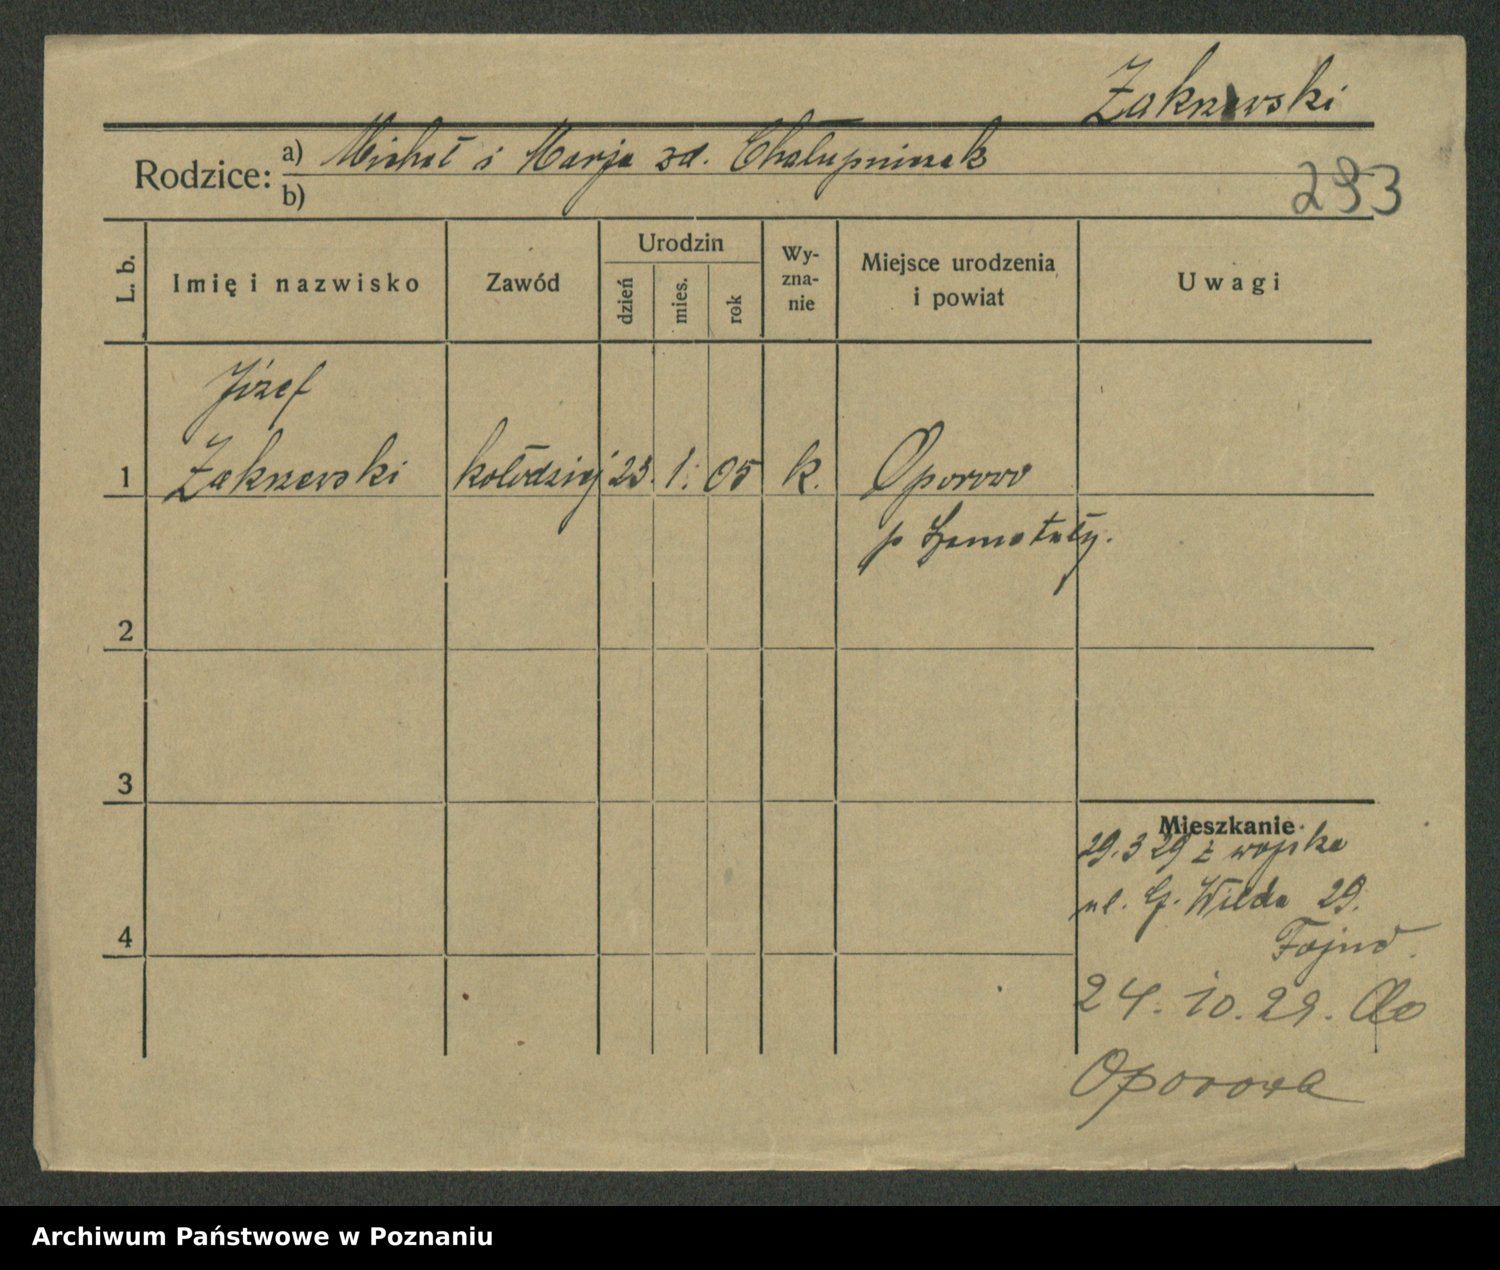 Zakrzewski
Rodzice: a) Michał i Marja zd. Chałupniczak
b)
293
L. b. Imię i nazwisko Zawód Urodzin dzień mies. rok Wy-zna-nie Miejsce urodzenia i powiat Uwagi
Józef
1 Zakrzewski kołodziej 23. 1. 05 k. Oporowo
p Szamotuły.
2
3
Mieszkanie
29.3 29 z wojska
ul. G. Wilda 29.
4
24. 10. 29. do
Oporowa
Archiwum Państwowe w Poznaniu